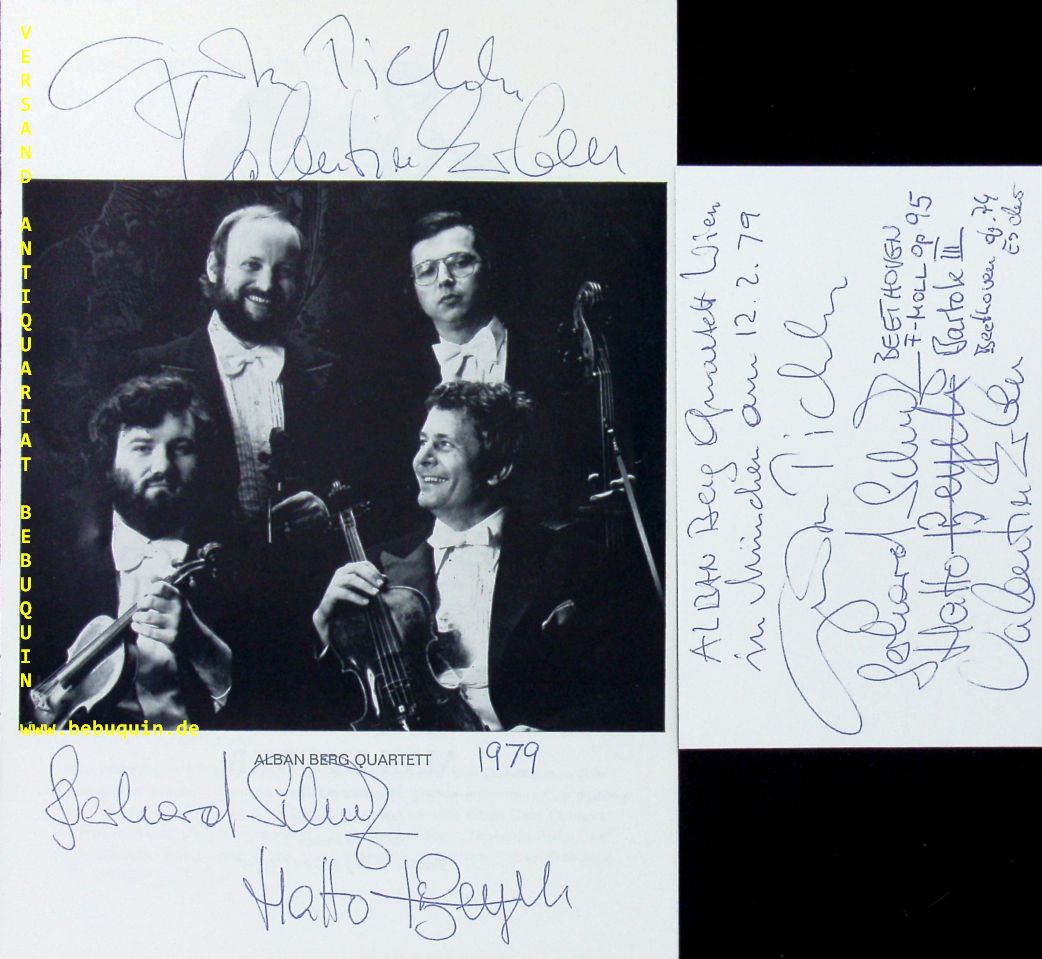 VERSAND ANTIQUARIAT BEBUQUIN
Günter Pichler
Valentin Erben
www.bebuquin.de
ALBAN BERG QUARTETT
1979
Gerhard Schulz
Hatto Beyerle
ALBAN Berg Quartett Wien
in München am 12.2.79
Günter Pichler
Gerhard Schulz
BEETHOVEN
F-MOLL op 95
Hatto Beyerle
Bartok III
Valentin Erben
Beethoven op. 74
Es dur